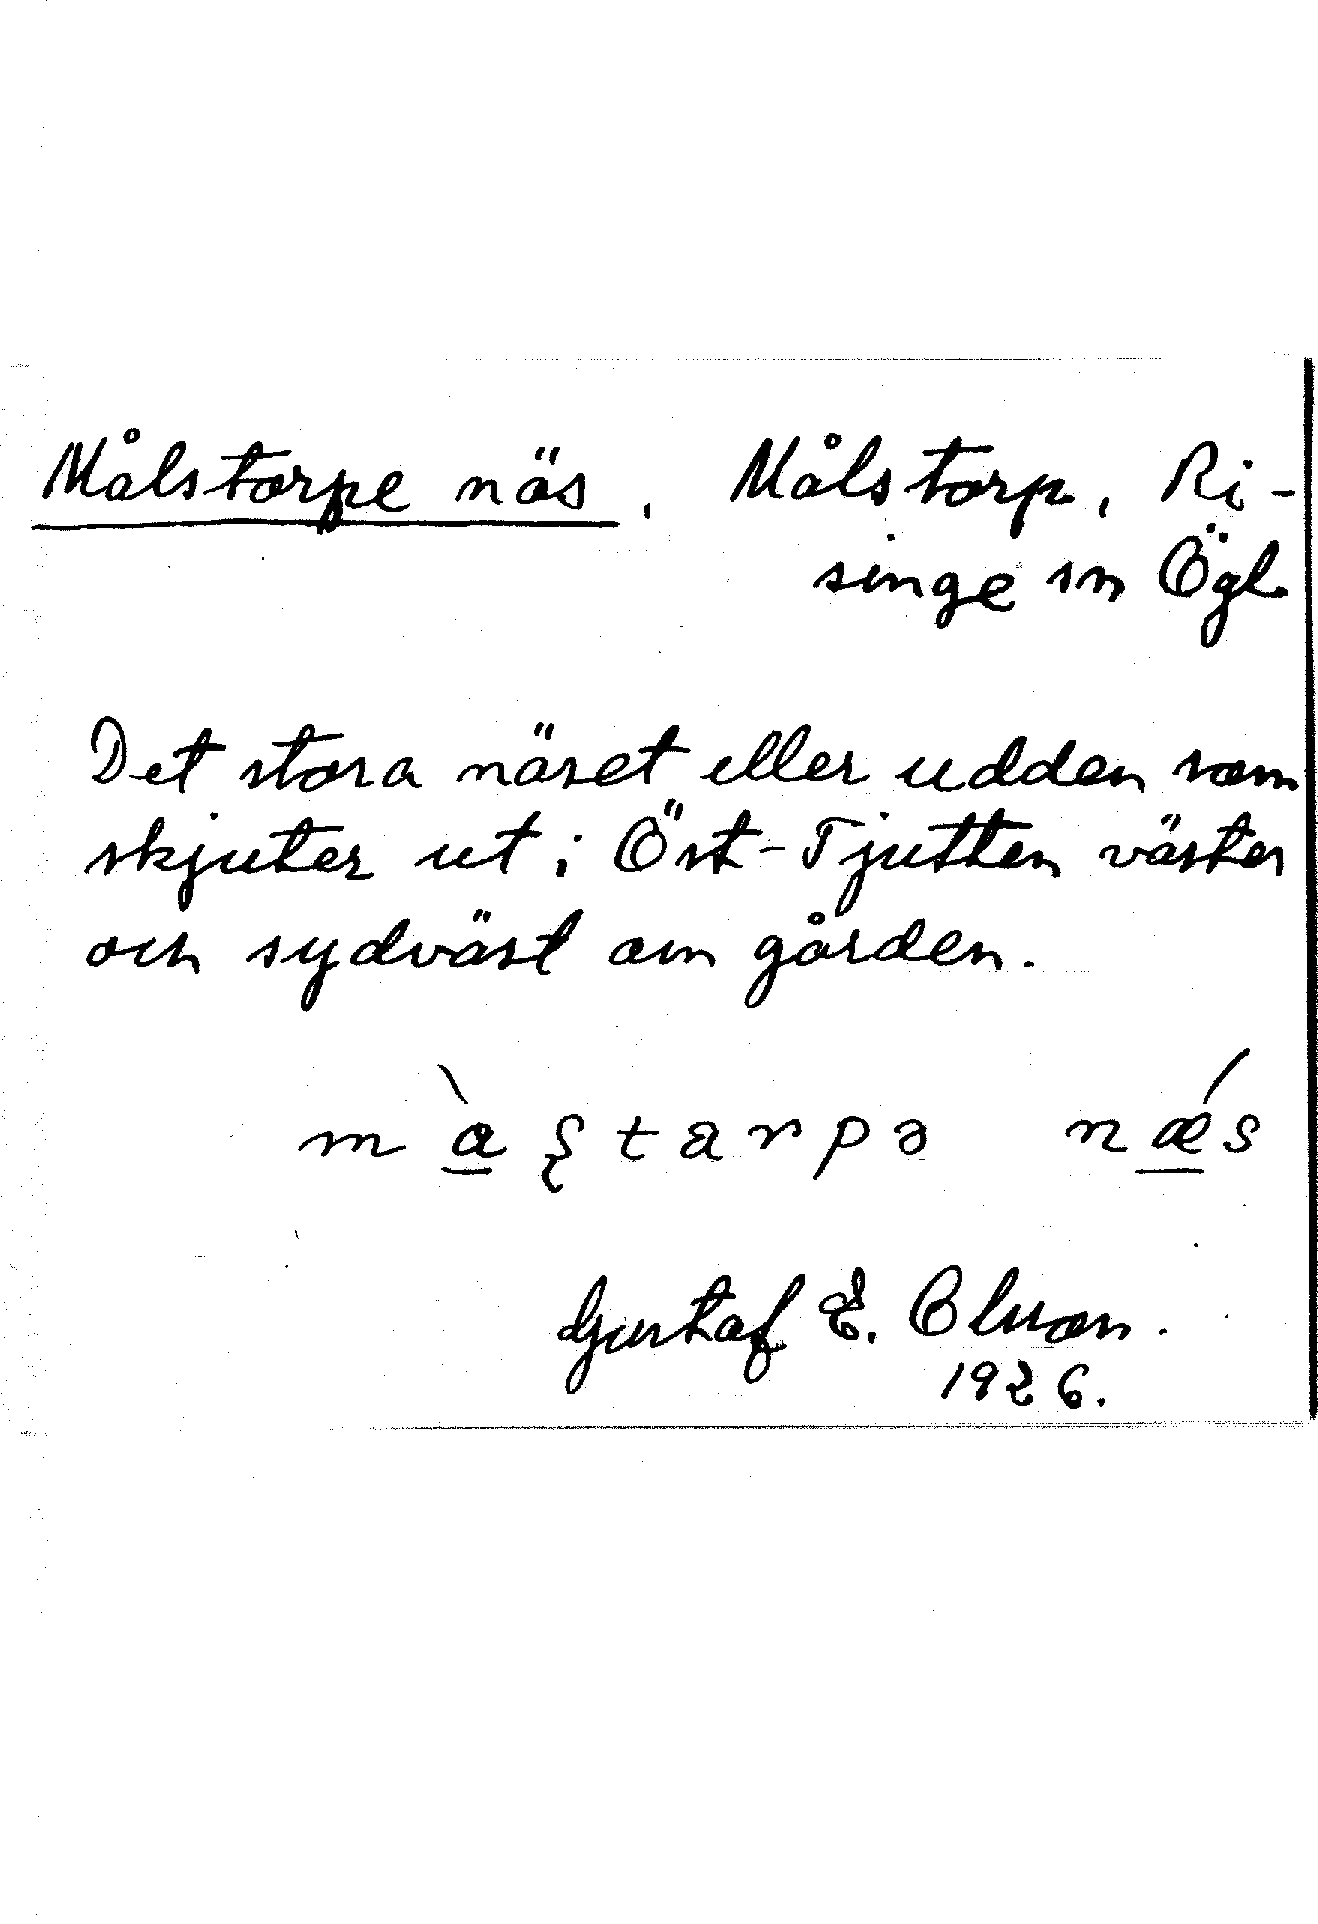 Målstorpe näs. Målstorp, Ri-
singe sn Ögl.
Det stora näset eller udden som
skjuter ut i Öst-Tjutten väster
och sydväst om gården.
Gustaf E. Olsson.
1926.